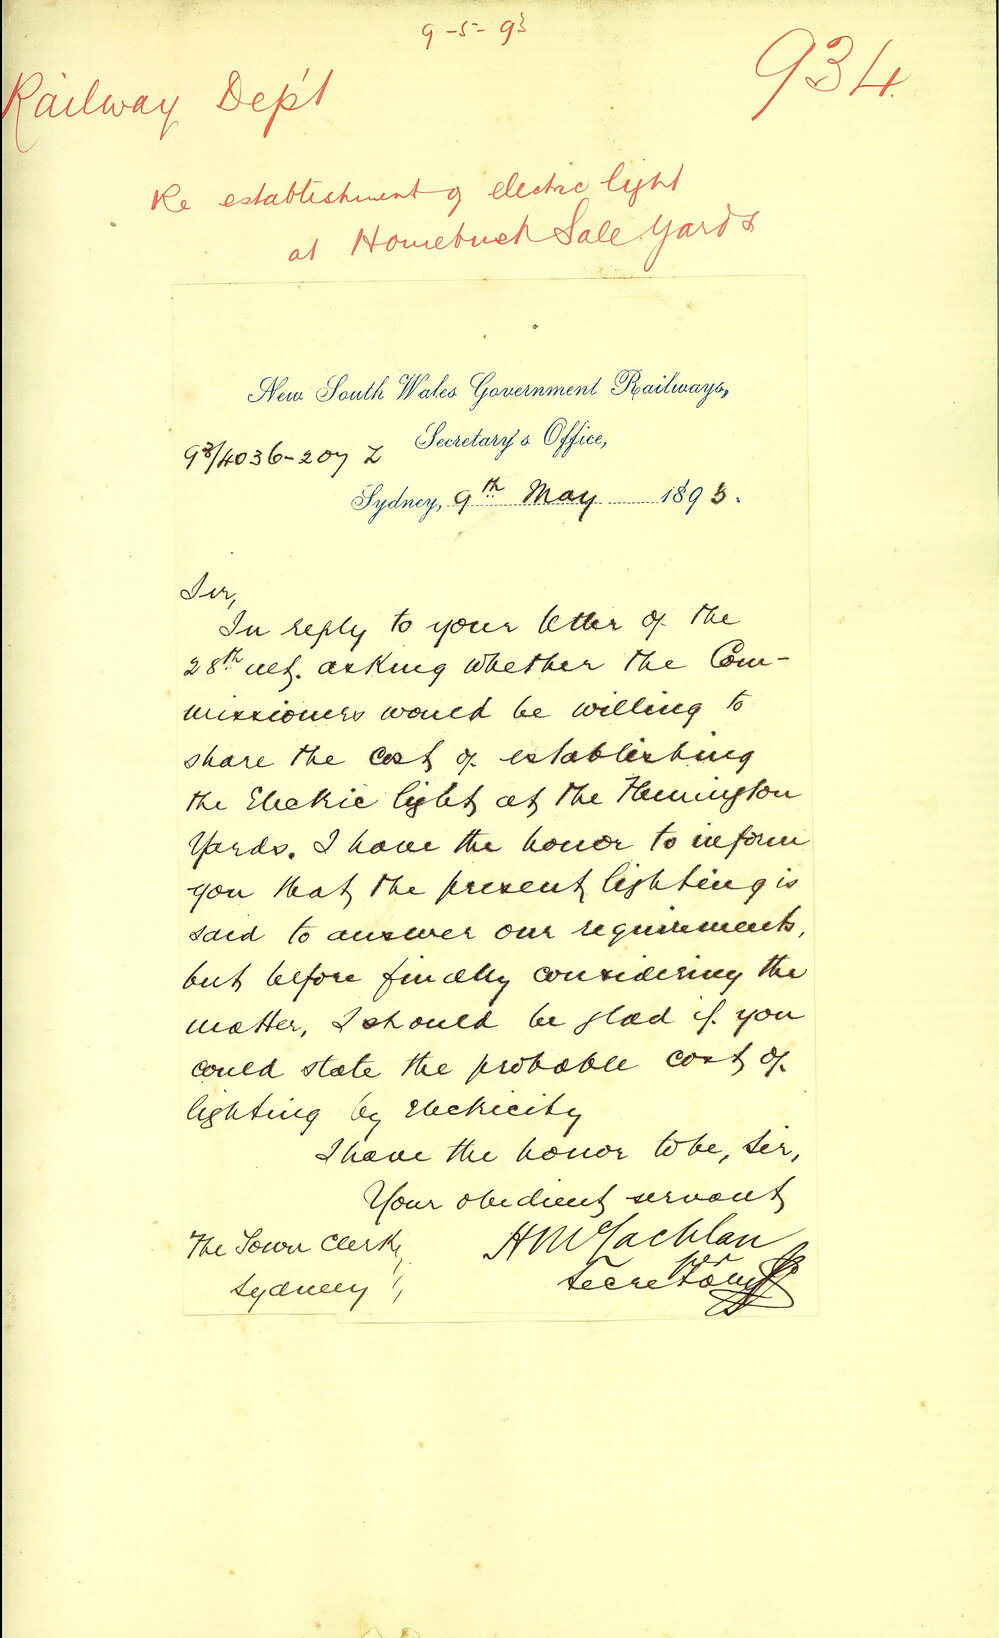 9-5-93
934
Railway Dep't
Re establishment of electric light
at Homebush Sale Yards
New South Wales Government Railways,
Secretary's Office,
93/4036-207 Z
Sydney, 9th May 1893.
Sir,
In reply to your letter of the
28th ult. asking whether the Com-
missioners would be willing to
share the cost of establishing
the Electric light at the Flemington
Yards. I have the honor to inform
you that the present lighting is
said to answer our requirements,
but before finally considering the
matter, I should be glad if you
could state the probable cost of
lighting by Electricity
I have the honor to be, Sir,
Your obedient servant
H McLachlan
Secretary
The Town Clerk,
Sydney